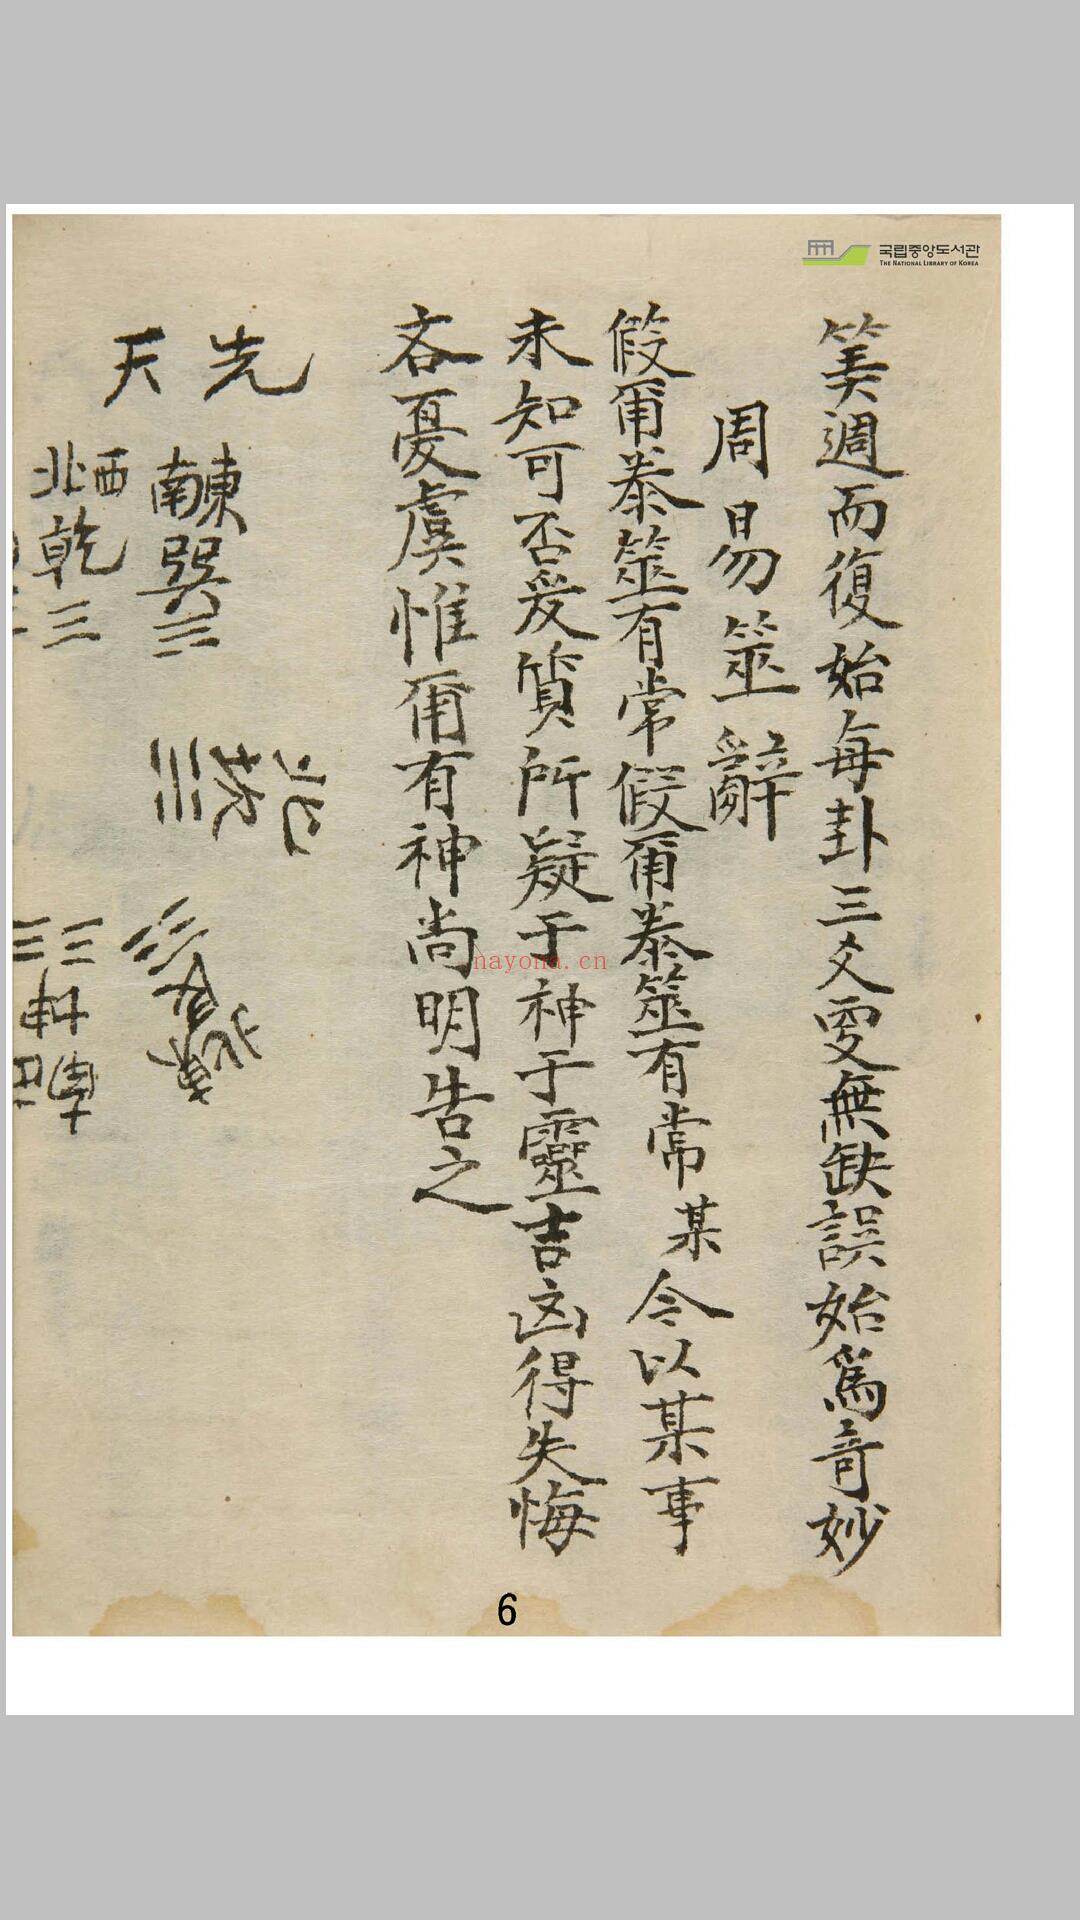 국립중앙도서관
THE NATIONAL LIBRARY OF KOREA
筭週而復始每卦三爻変無缺誤始爲奇妙
周易筮辭
假爾泰筮有常假爾泰筮有常某今以某事
未知可否爰質所疑于神于靈吉凶得失悔
吝憂虞惟爾有神尚明告之
先天
東南巽☴
西北乾☰
北坎☵
東北艮
坤
nayona.cn
6